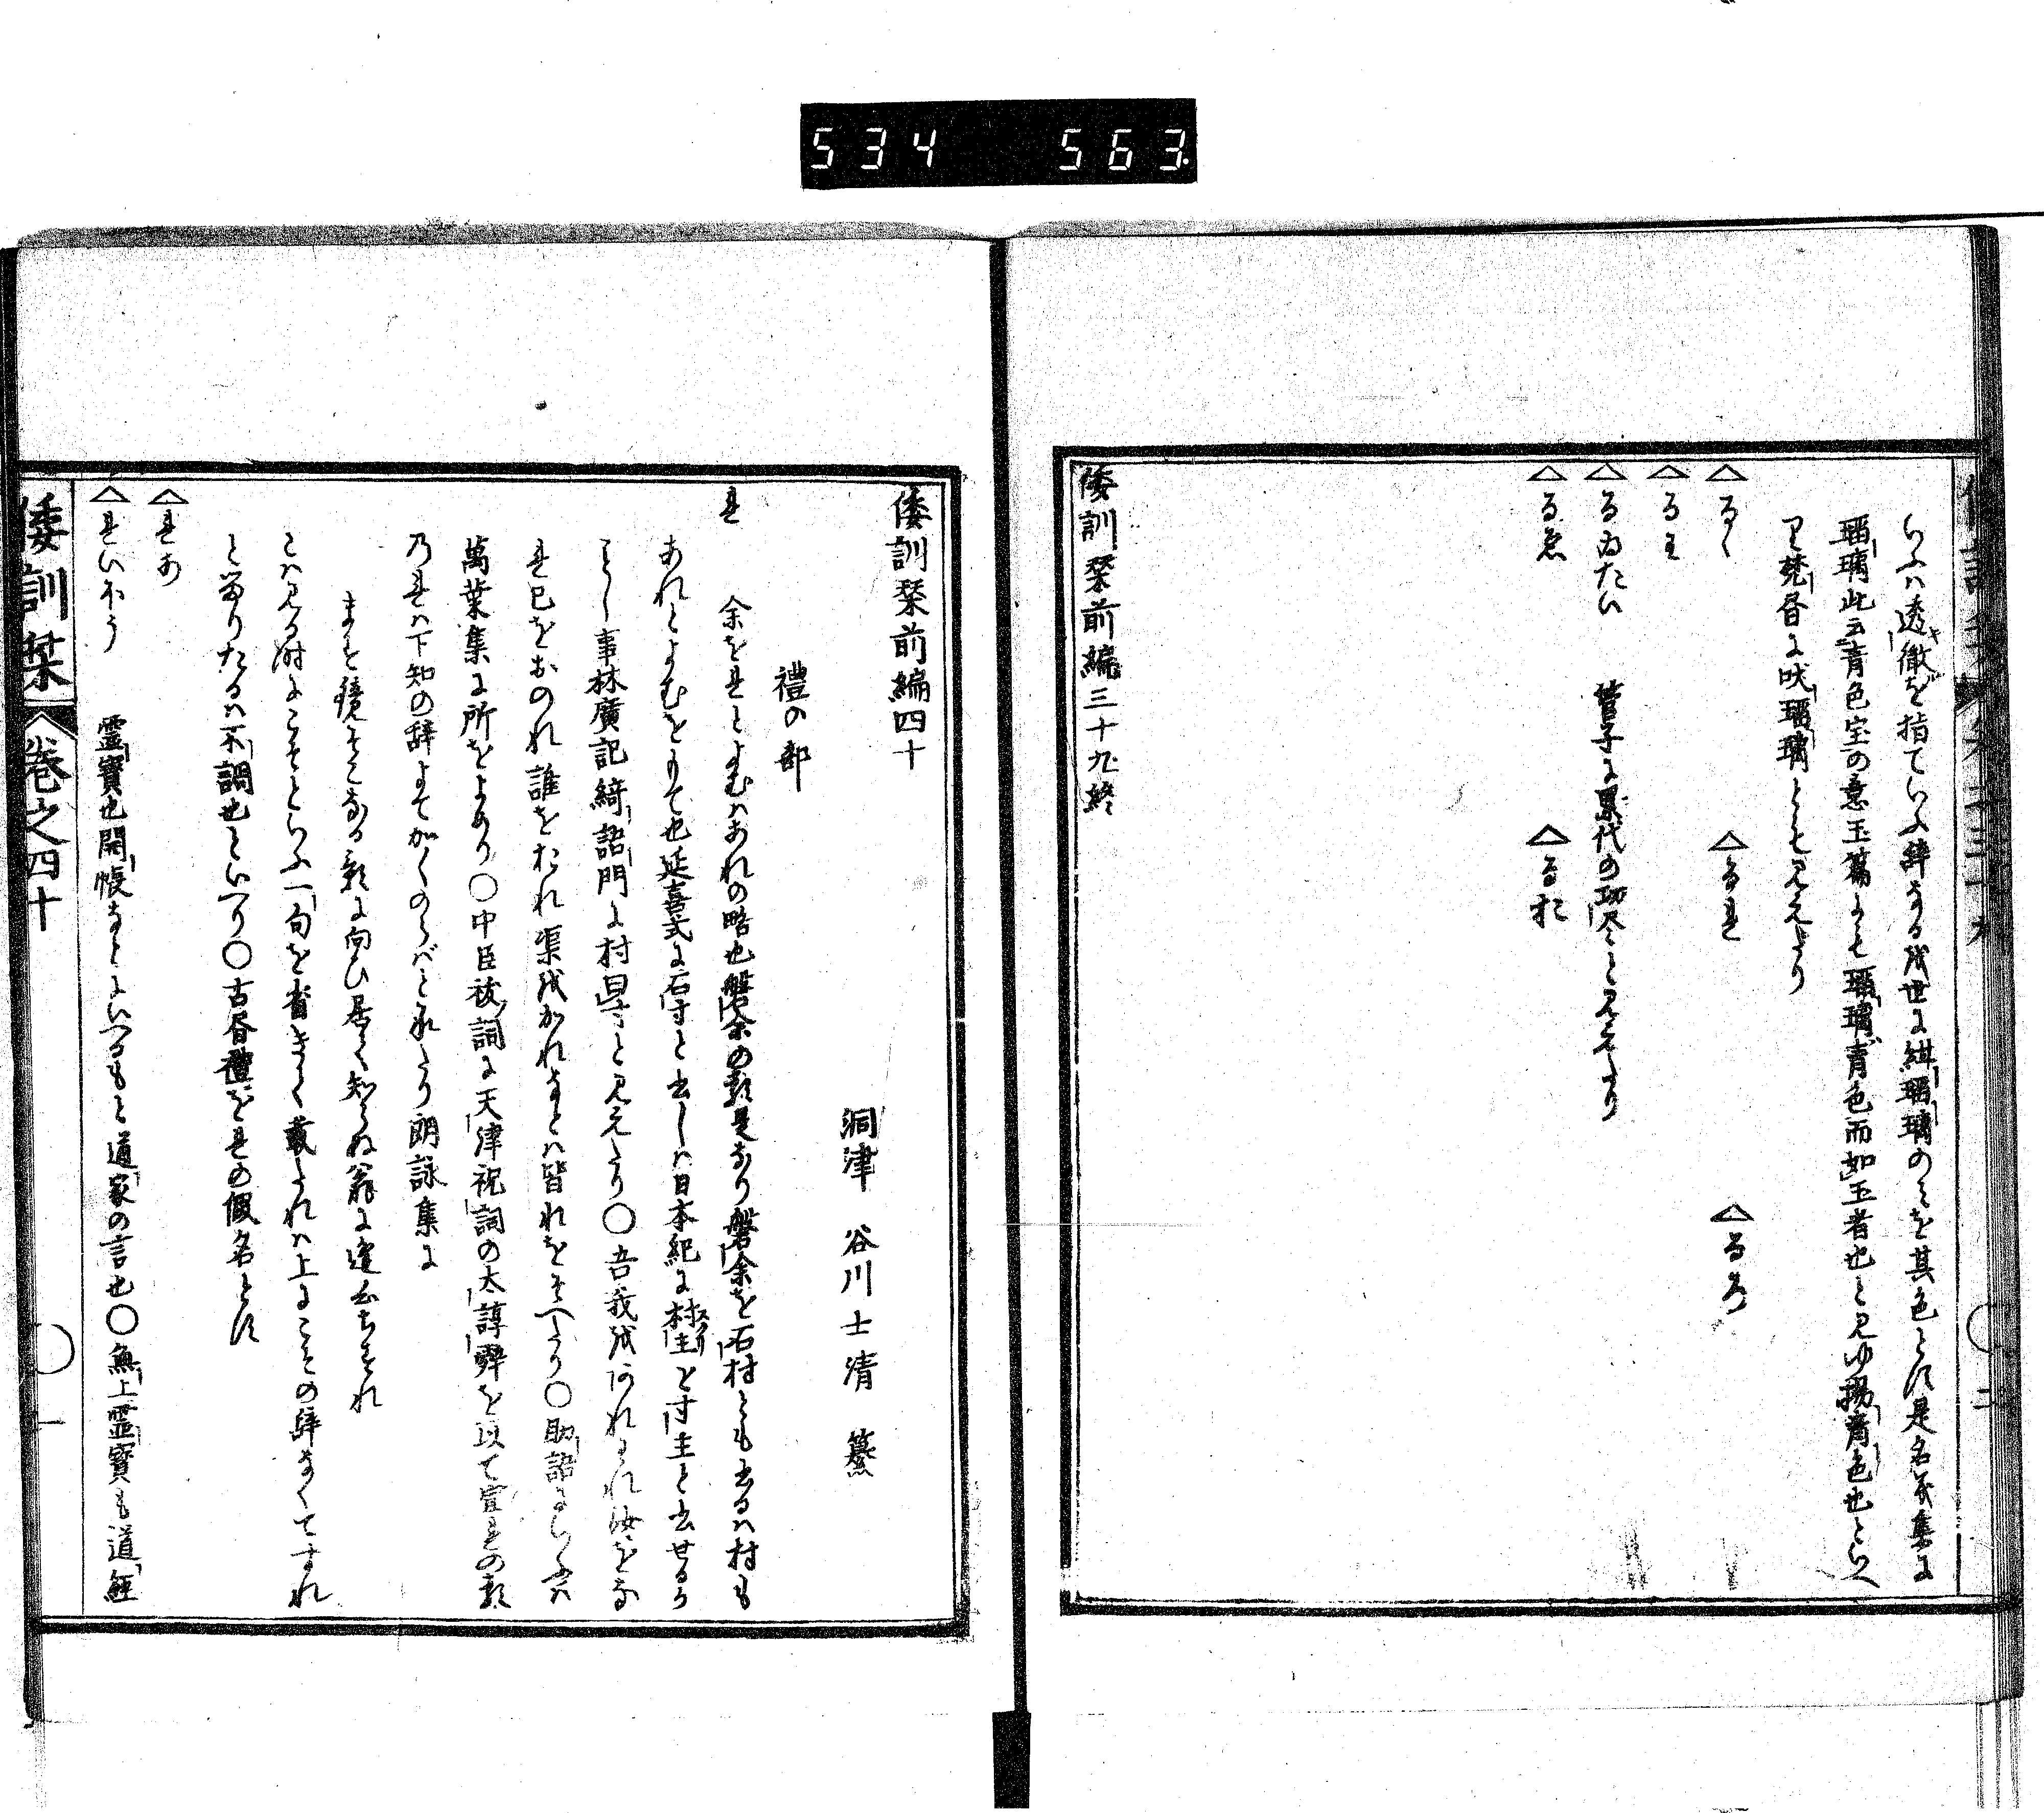 534 563.
いふハ透徹を指ていふ辞なる我世に紺瑠璃のミを其色とす是名義集に
瑠璃此云青色宝の意玉篇にも瑠璃青色而如玉者也と見ゆ揚青色也といへ
り梵音に吠瑠璃とも見えたり
△るく △るれ △るろ
△るヱ
△るゐたい 管子に累代の功尽と見えたり
△るゑ △るお
倭訓栞前編三十九終
倭訓栞前編四十
洞津 谷川士清 纂
禮の部
れ 余をれとよむハあれの略也磐余の類是なり磐余を石村とも書るハ村も
あれとよむをもて也延喜式に石寸と書しハ日本紀に村主と寸主と書せるか
ことし事林廣記綺語門に村曰寸と見えたり〇吾我をわれ汝をな
れ己をおのれ誰をたれ渠をかれなとハ皆れをそへたり〇助語にいふハ
萬葉集に所をよめり〇中臣祓詞に天津祝詞の太諄辞を以て宣れの類
乃れハ下知の辞よてかくのらバとれり朗詠集に
ます鏡そこなる影に向ひ居て知らぬ翁に逢心ちすれ
こハ見る時にこそといふ一句を省きて載たれハ上にこその辞なくてすれ
と留りたるハ不調也といへり〇古昏禮をれの假名とす
△れあ
△れいほう 靈寶也開帳なとにいへるもと道家の言也〇無上靈寶も道経
倭訓栞 巻之四十 一